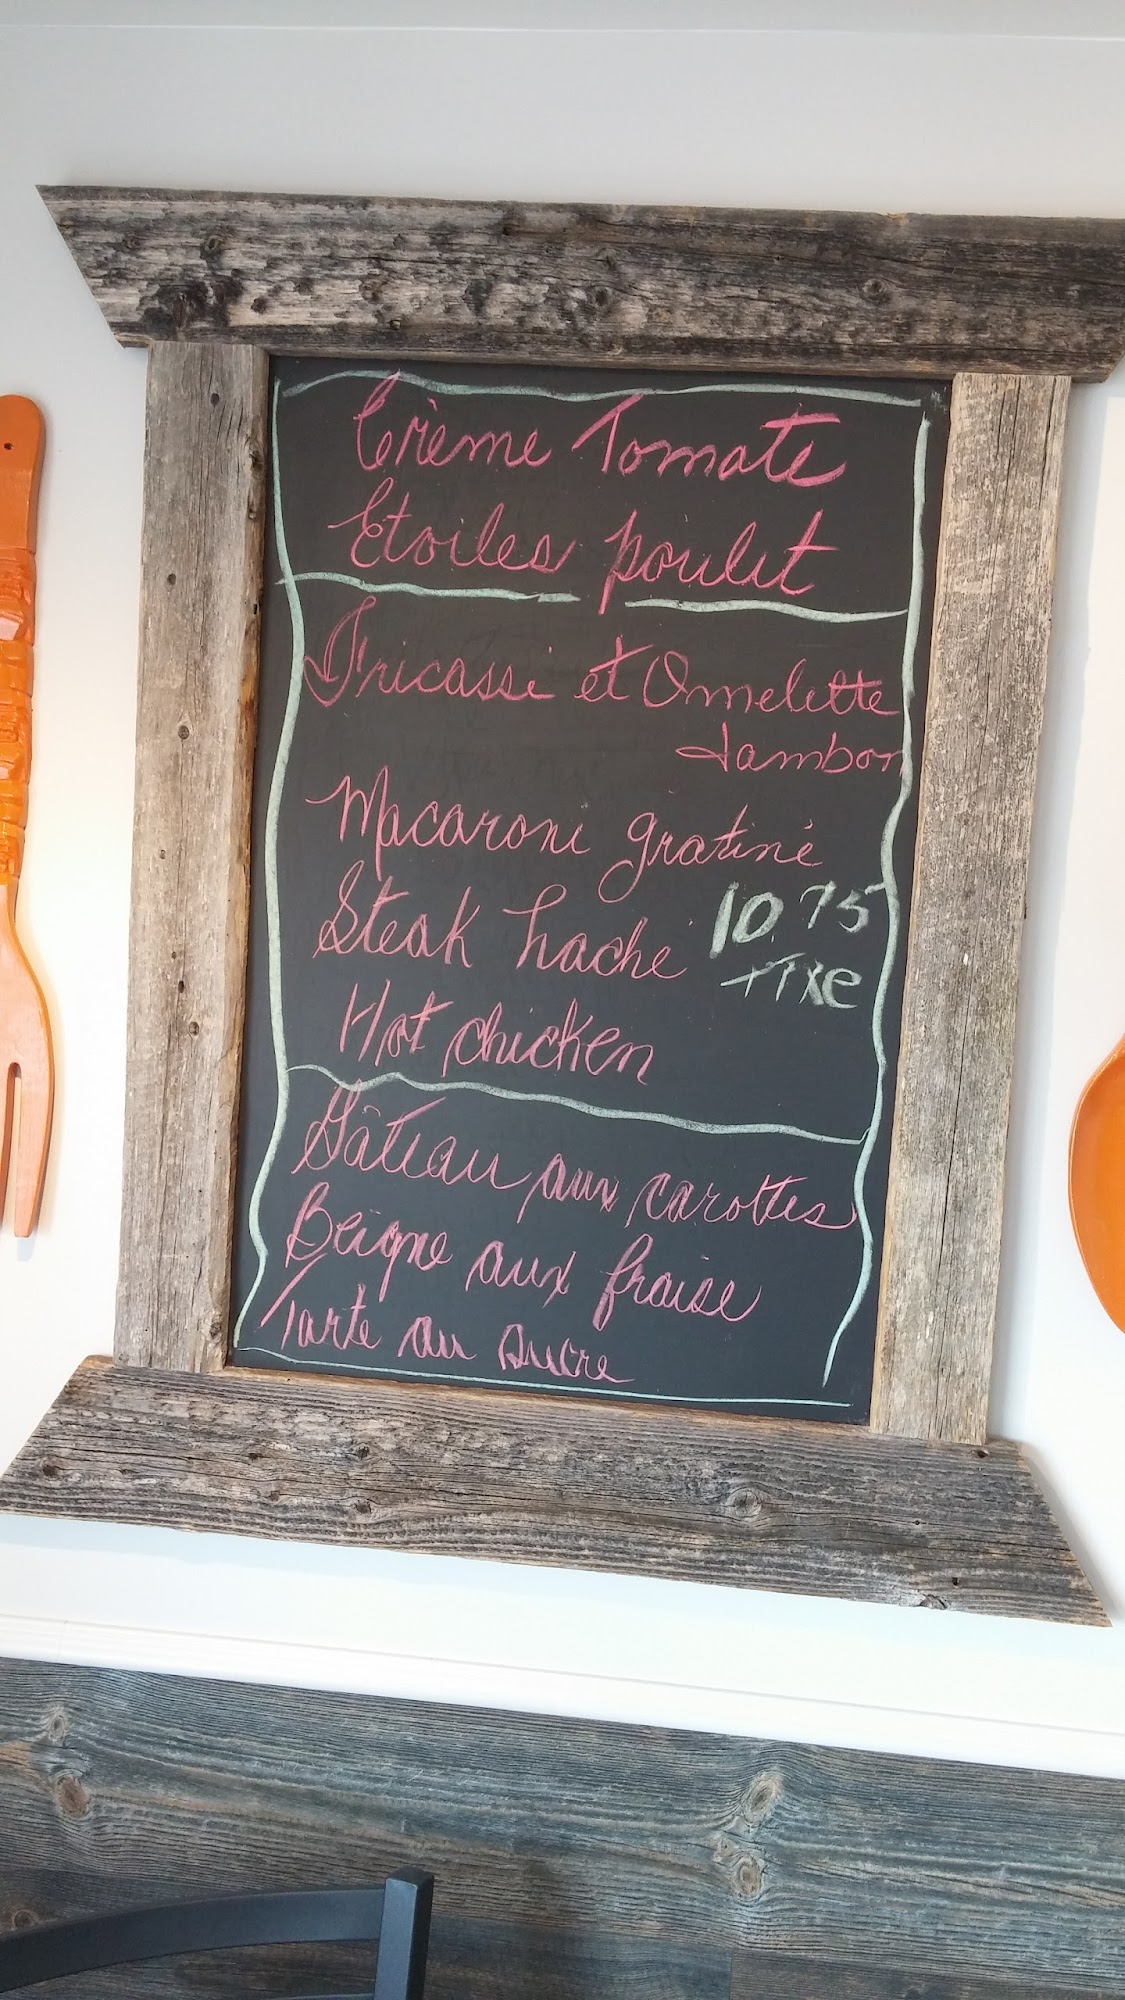 Crème Tomate
Etoiles poulet
Fricassi et Omelette
Jambon
Macaroni gratiné
Steak haché
10.75
+Txe
Hot chicken
Gâteau aux carottes
Beigne aux fraise
Tarte au sucre